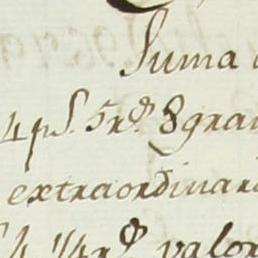 Suma
4 pS. 5 rs. 8 gran
extraordinari
4 rs. valor